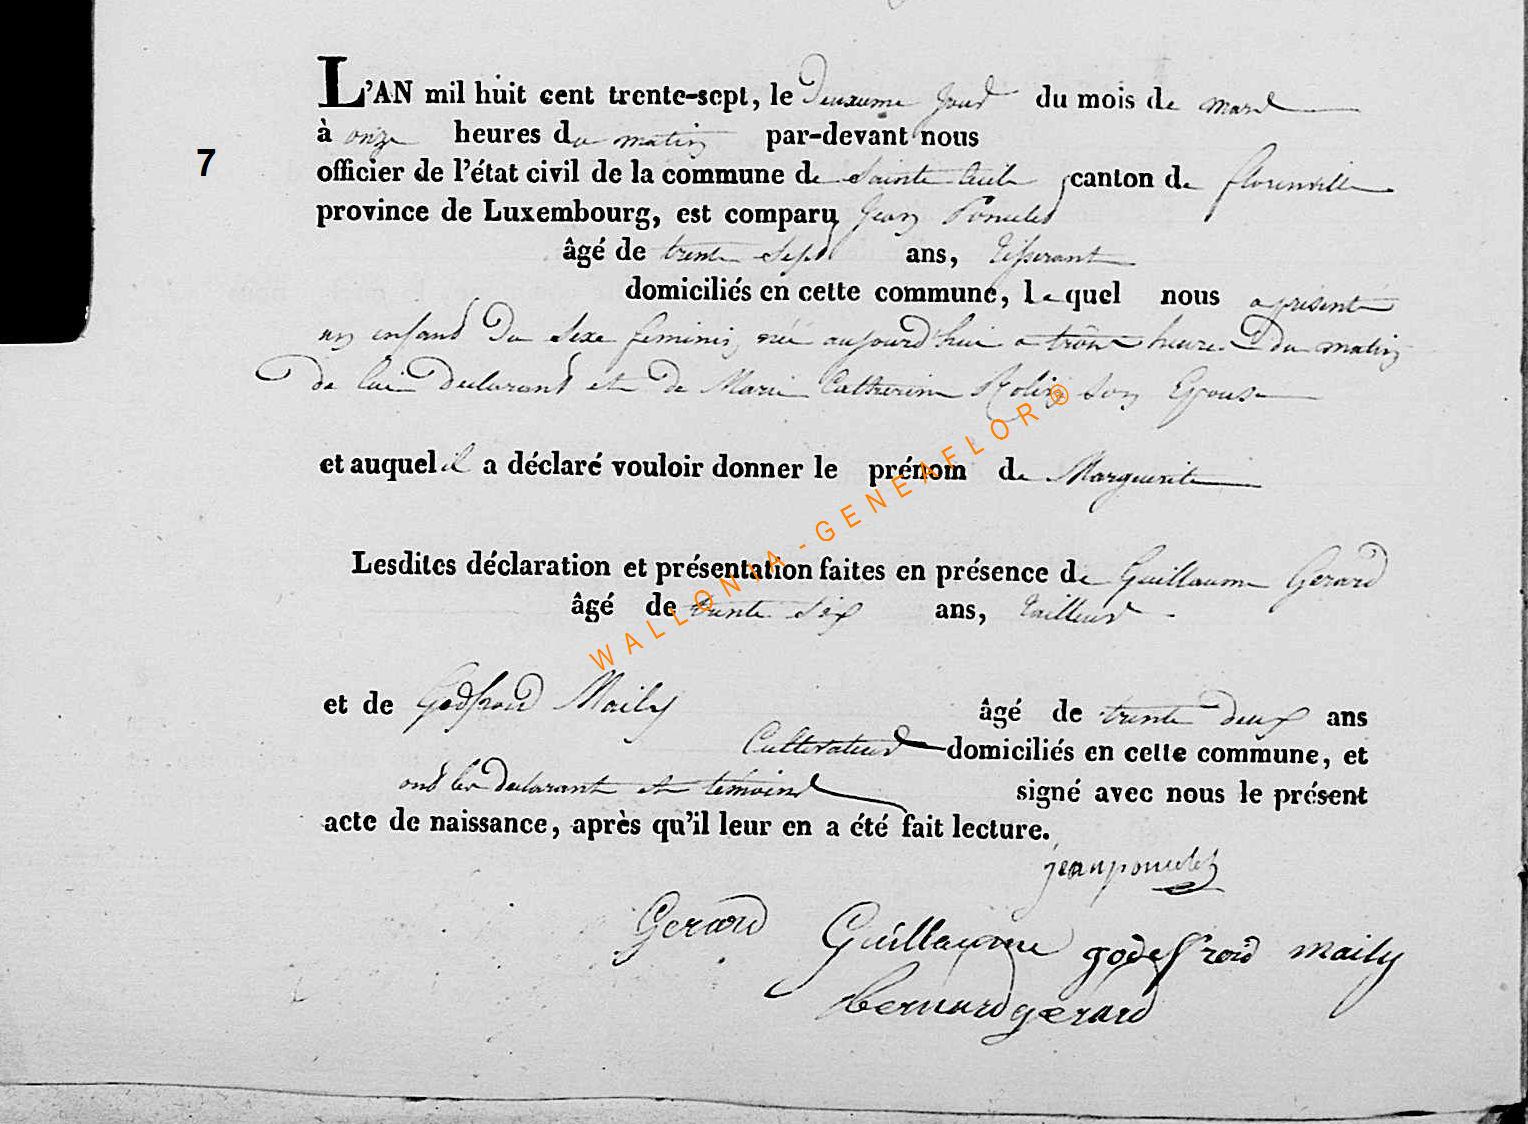 L'AN mil huit cent trente-sept, le deuxieme jour du mois de mars
à onze heures du matin par-devant nous
7
officier de l'état civil de la commune de Sainte Cécile, canton de florenville
province de Luxembourg, est comparu Jean Poncelet
âgé de trente sept ans, tisserant
domiciliés en cette commune, lequel nous a présenté
un enfant du sexe feminin, née aujourd'hui a trois heures du matin
de lui declarant et de Marie Catherine Rolin son Epouse
et auquel il a déclaré vouloir donner le prénom de Marguerite
Lesdites déclaration et présentation faites en présence de Guillaume Gerard
âgé de trente six ans, tailleur
et de Godfroid Maily âgé de trente deux ans
Cultivateur domiciliés en cette commune, et
ont les declarant et temoins signé avec nous le présent
acte de naissance, après qu'il leur en a été fait lecture.
jean poncelet
Gerard Guillaume godeffroid maily
bernard gerard
WALLONIA-GENEAFLOR®